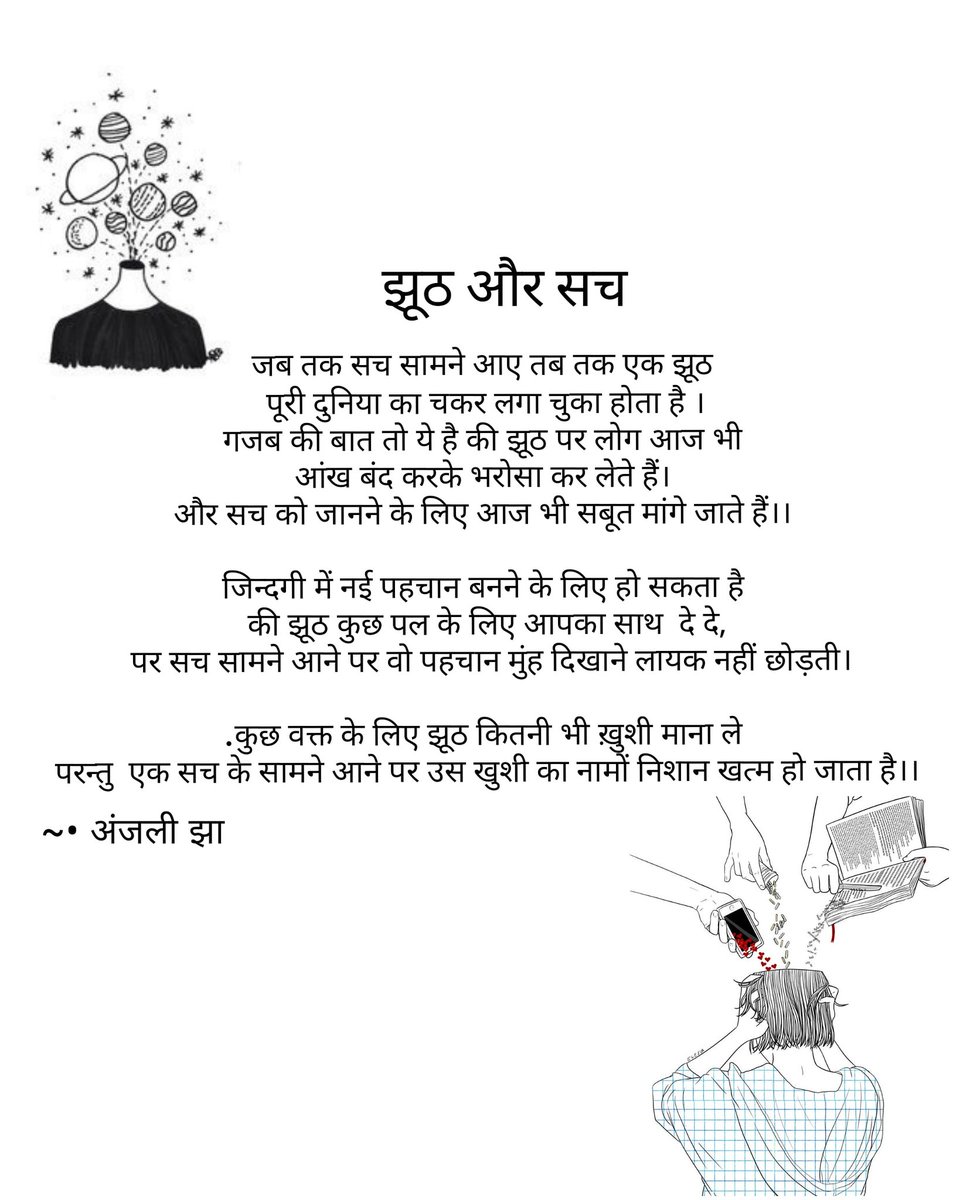 झूठ और सच
जब तक सच सामने आए तब तक एक झूठ
पूरी दुनिया का चकर लगा चुका होता है ।
गजब की बात तो ये है की झूठ पर लोग आज भी
आंख बंद करके भरोसा कर लेते हैं।
और सच को जानने के लिए आज भी सबूत मांगे जाते हैं।।
जिन्दगी में नई पहचान बनने के लिए हो सकता है
की झूठ कुछ पल के लिए आपका साथ  दे दे,
पर सच सामने आने पर वो पहचान मुंह दिखाने लायक नहीं छोड़ती।
.कुछ वक्त के लिए झूठ कितनी भी ख़ुशी माना ले
परन्तु  एक सच के सामने आने पर उस खुशी का नामों निशान खत्म हो जाता है।।
~• अंजली झा